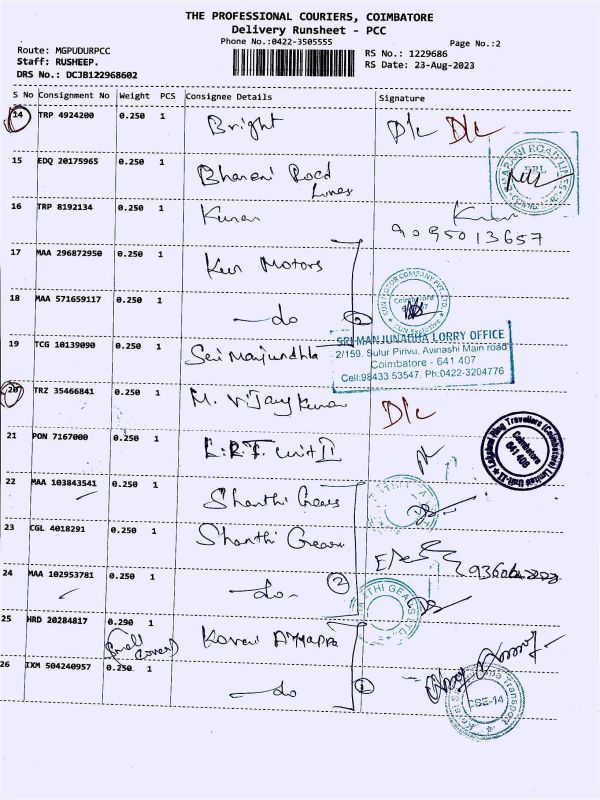 THE PROFESSIONAL COURIERS, COIMBATORE
Delivery Runsheet - PCC
Phone No.:0422-3505555
Page No.:2
Route: MGPUDURPCC
RS No.: 1229686
Staff: RUSHEEP.
RS Date: 23-Aug-2023
DRS No.: DCJB122968602
S No Consignment No Weight PCS Consignee Details Signature
14 TRP 4924200 0.250 1 Bright D/c D/c
15 EDQ 20175965 0.250 1 Bharani Road Lines
16 TRP 8192134 0.250 1 Kumar
9095013657
17 MAA 296872950 0.250 1 Kun Motors
18 MAA 571659117 0.250 1 —do 2
SRI MANJUNADHA LORRY OFFICE
19 TCG 10139090 0.250 1 Sri Manjundha
2/159, Sulur Pirivu, Avinashi Main road
Coimbatore - 641 407
Cell:98433 53547, Ph:0422-3204776
20 TRZ 35466841 0.250 1 M. Vijay Kumar D/c
21 PON 7167000 0.250 1 L.R.T. Unit II
Coimbatore
641 406
22 MAA 103843541 0.250 1 Shanthi Gears
23 CGL 4018291 0.250 1 Shanthi Gears
24 MAA 102953781 0.250 1 —do— 2
25 HRD 20284817 0.290 1 Kovai Ayyappa
(Small Cover)
26 IXM 504240957 0.250 1 —do
CBE-14